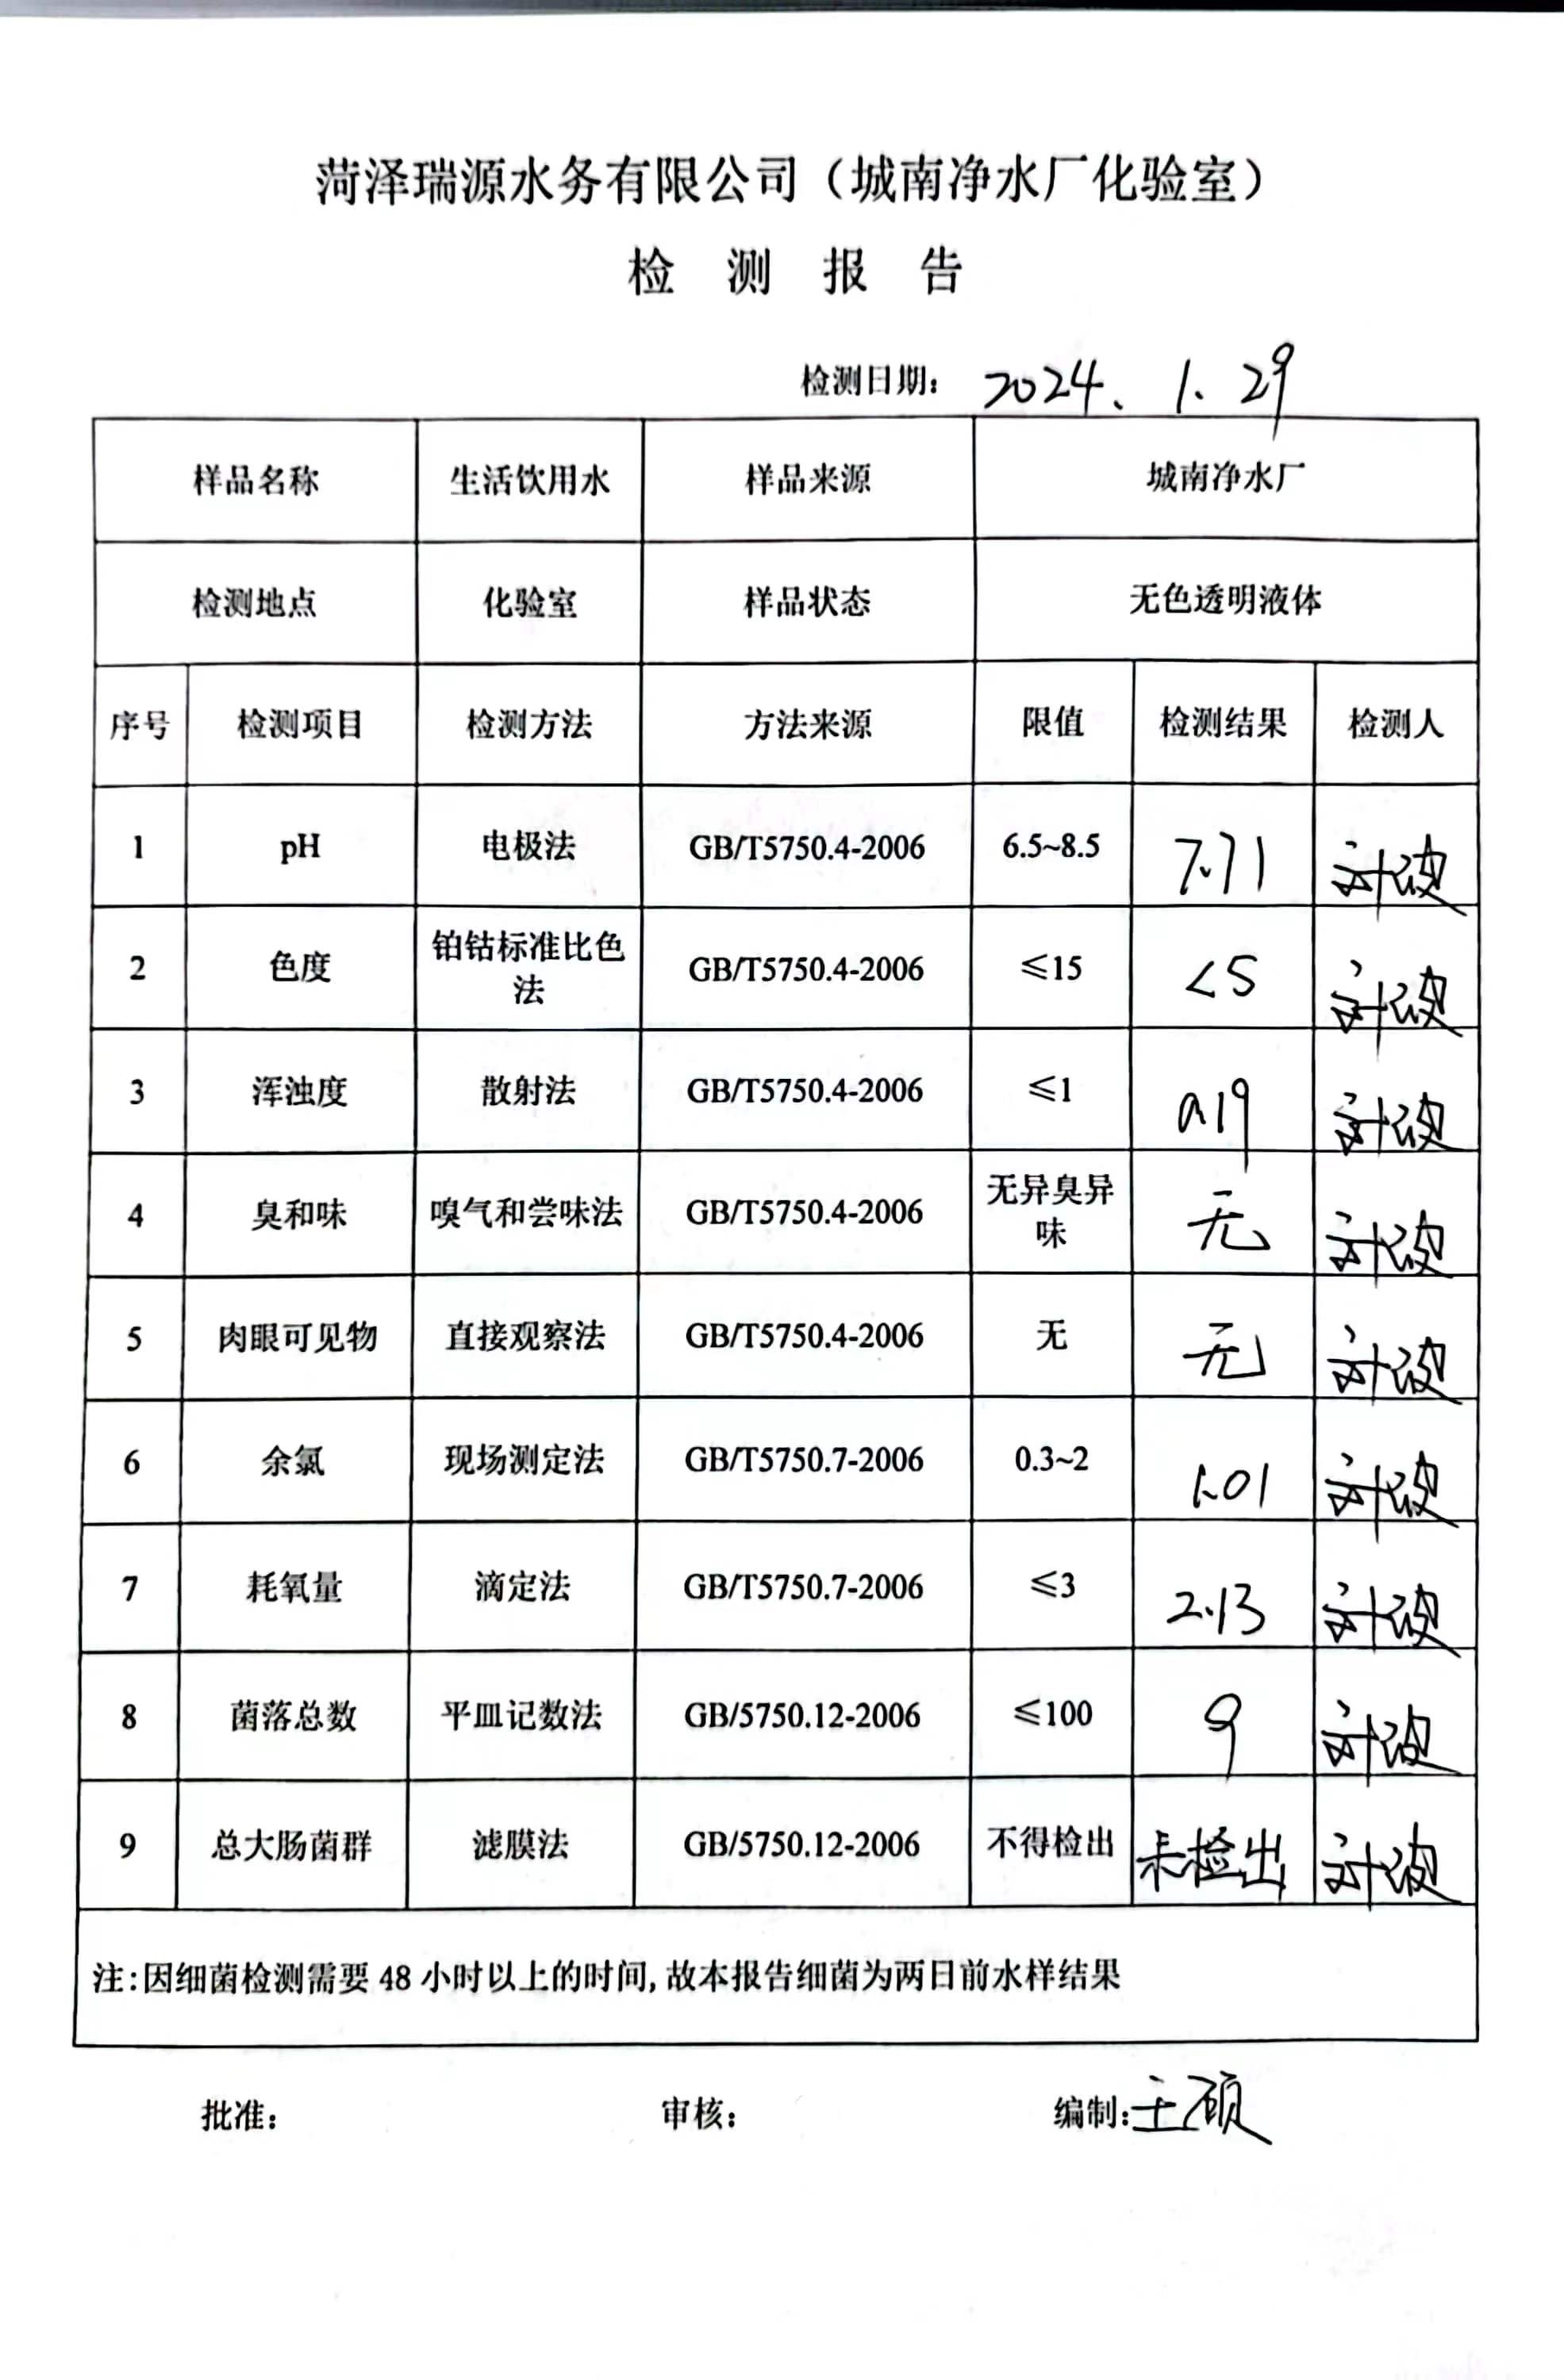 菏泽瑞源水务有限公司（城南净水厂化验室）
检 测 报 告
检测日期： 2024. 1. 29
样品名称 生活饮用水 样品来源 城南净水厂
检测地点 化验室 样品状态 无色透明液体
序号 检测项目 检测方法 方法来源 限值 检测结果 检测人
1 pH 电极法 GB/T5750.4-2006 6.5~8.5 7.71
2 色度 铂钴标准比色法 GB/T5750.4-2006 ≤15 <5
3 浑浊度 散射法 GB/T5750.4-2006 ≤1 0.19
4 臭和味 嗅气和尝味法 GB/T5750.4-2006 无异臭异味 无
5 肉眼可见物 直接观察法 GB/T5750.4-2006 无 无
6 余氯 现场测定法 GB/T5750.7-2006 0.3~2 1.01
7 耗氧量 滴定法 GB/T5750.7-2006 ≤3 2.13
8 菌落总数 平皿记数法 GB/5750.12-2006 ≤100 9
9 总大肠菌群 滤膜法 GB/5750.12-2006 不得检出 未检出
注:因细菌检测需要 48 小时以上的时间,故本报告细菌为两日前水样结果
批准: 审核: 编制:王硕